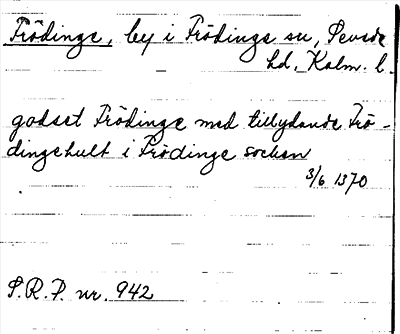 Frödinge, by i Frödinge sn, Sevede
hd, Kalm. l.
godset Frödinge med tillydande Frö-
dingehult i Frödinge socken
3/6 1370
S.R.P. nr. 942